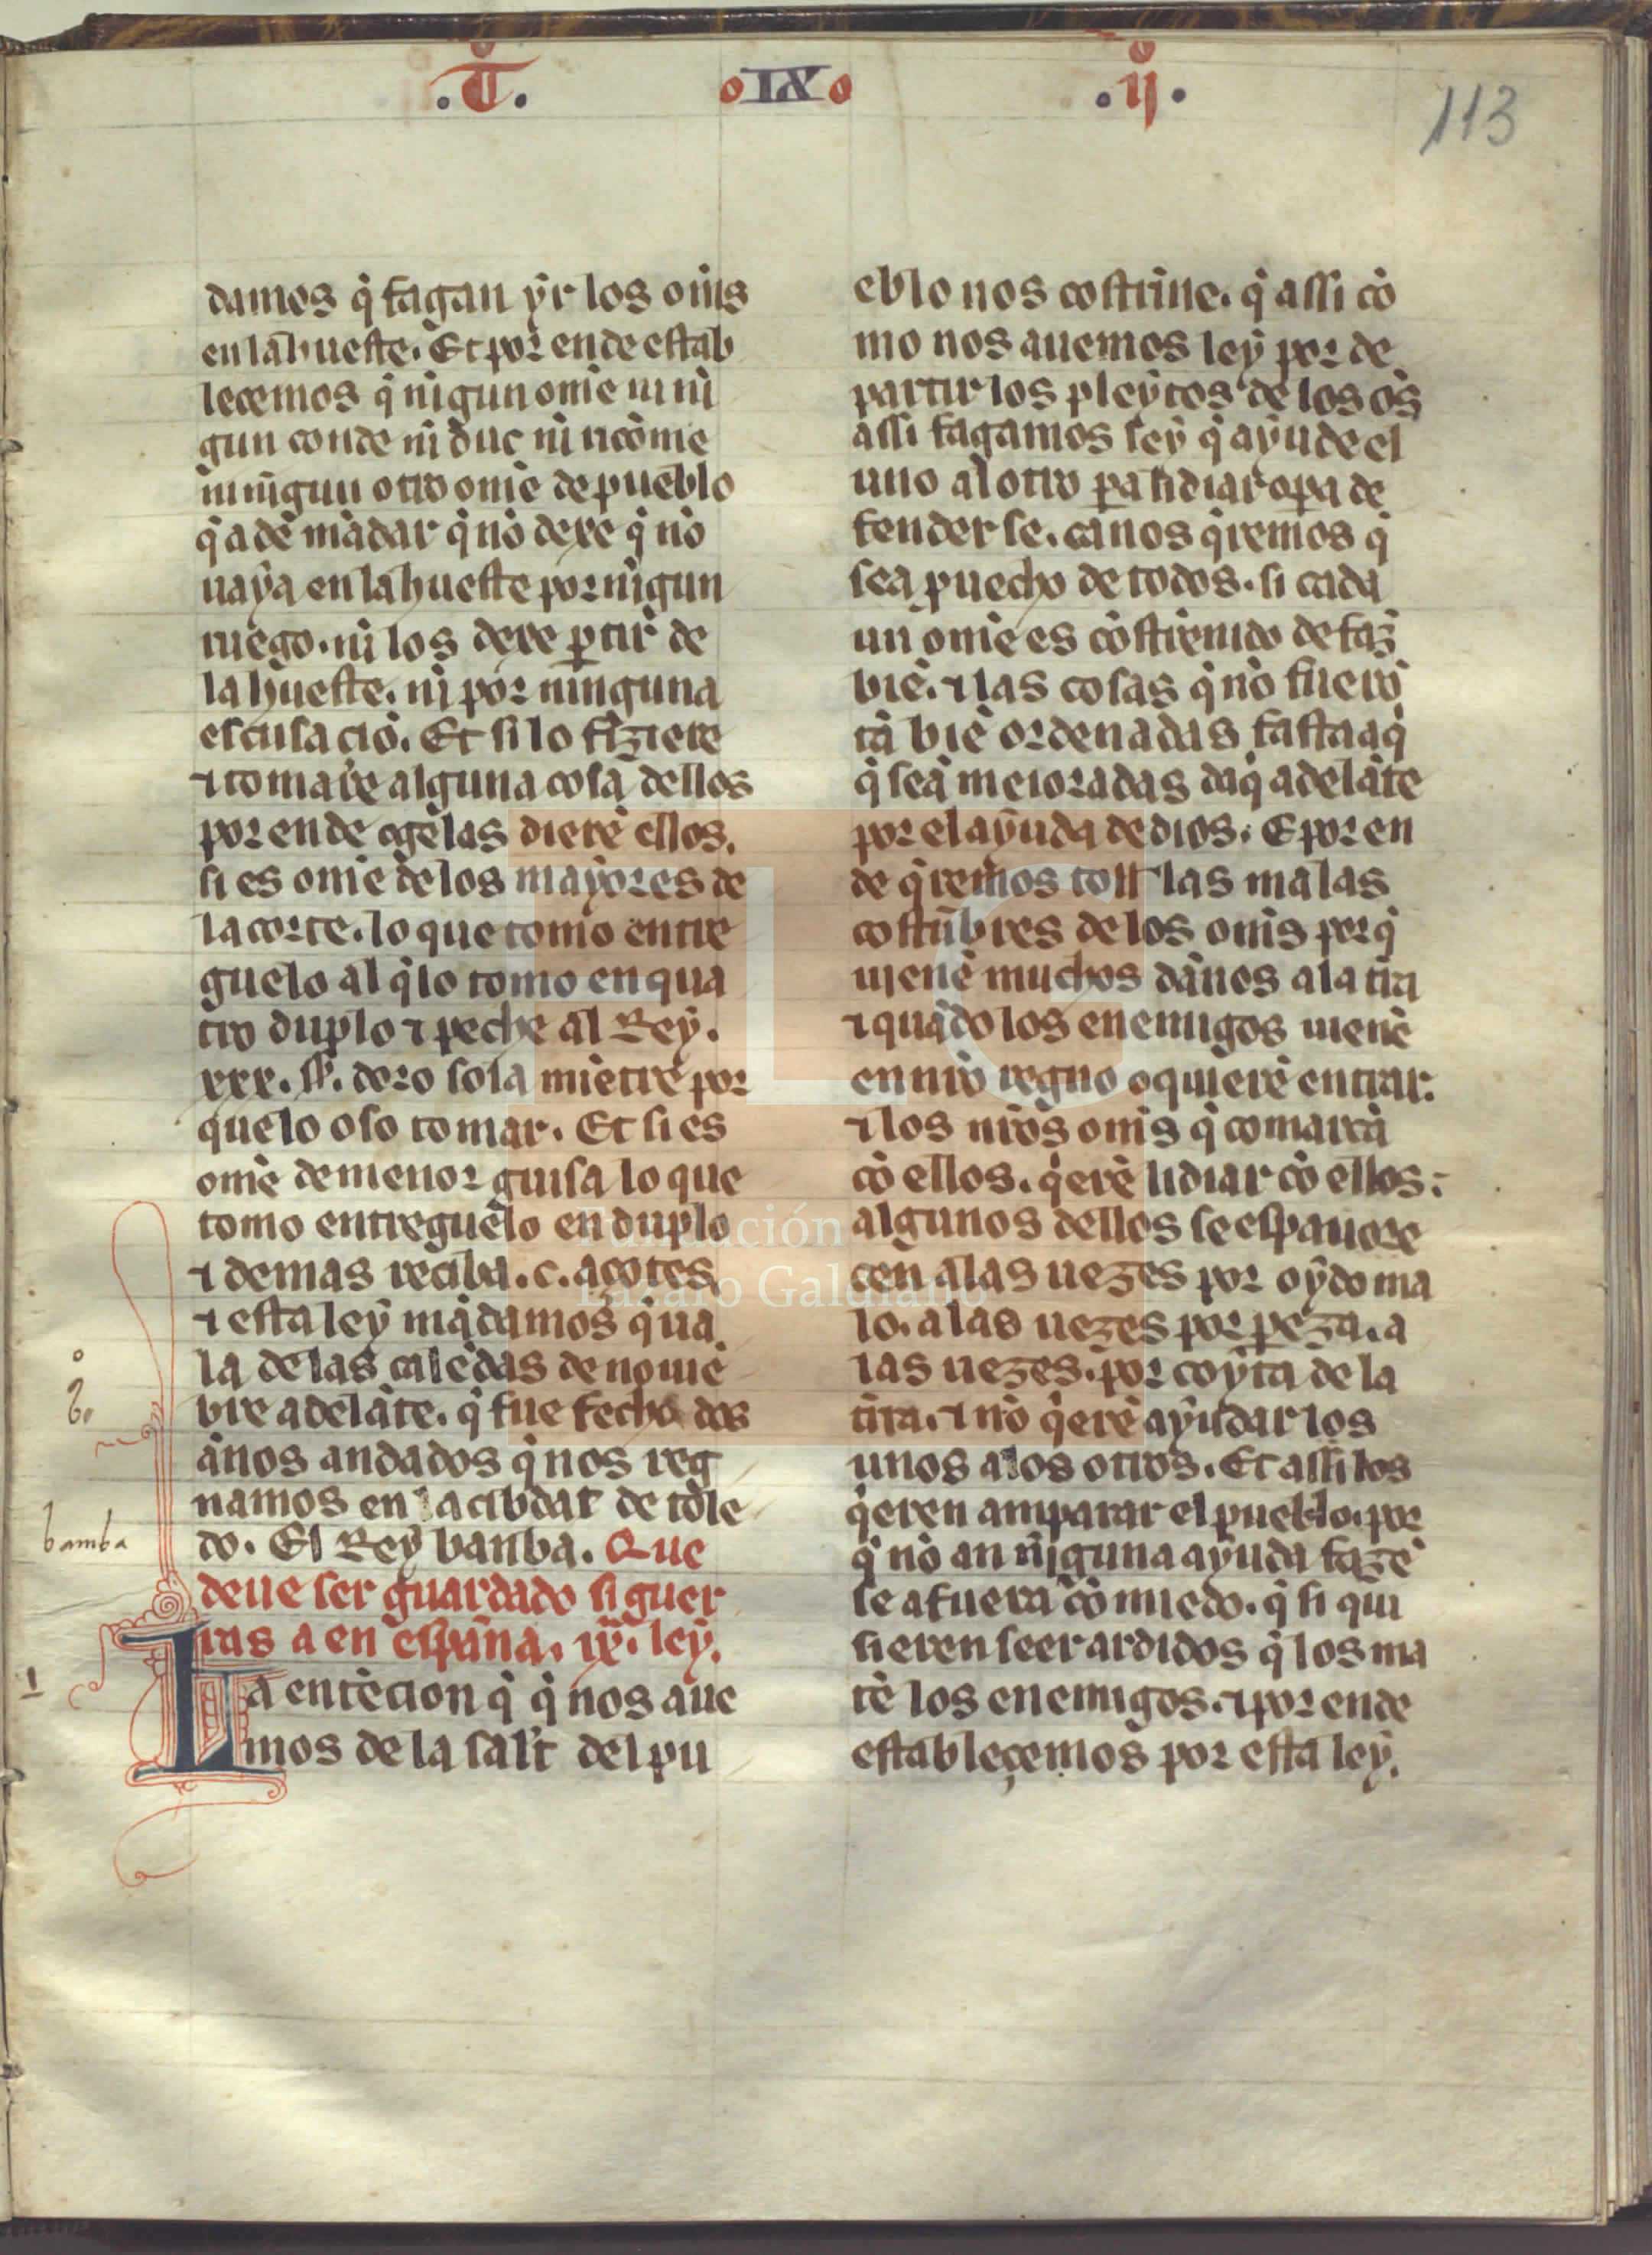 .T.
IX
.ij.
113
damos q̇ fagan ẏr los om̅s
en la hueste. Et por ende estab
lecemos q̇ nigun ome ni ni
gun conde ni duc ni ricome
ni nigun otro ome de pueblo
q̇ a de mādar q̇ nō dexe q̇ nō
uaẏa en la hueste por nigun
ruego. ni los dexe ꝑtir de
la hueste. ni por ninguna
escusaciō. Et si lo fiziere
⁊ tomare alguna cosa dellos
por ende o gelas dierē ellos.
si es ome de los maẏores de
la corte. lo que tomo entre
guelo al q̇ lo tomo en qua
tro duplo ⁊ peche al Reẏ.
xxx. ss̅. doro sola miētre por
quelo oso tomar. Et si es
ome de menor guisa lo que
tomo entreguelo en duplo
⁊ demas reciba .c. açotes
⁊ esta leẏ mādamos q̇ ua
la de las calēdas de nouiē
bre adelāte. q̇ fue fecho dos
ānos andados q̇ nos reg
namos en la cibdat de tole
do. El Reẏ banba. Que
bamba
deue ser guardado si guer
ras a en espan̄a. ix. leẏ.
La entēcion q̇ q̇ nos aue
mos de la salut del pu
eblo nos costrine. q̇ assi cō
mo nos auemos leẏ por de
partir los pleẏtos de los os̅
assi fagamos leẏ q̇ aẏude el
uno al otro ꝑa lidiar o ꝑa de
fender se. ca nos q̇remos q̇
sea ꝓuecho de todos. si cada
un ome es cōstrenido de faz̅
biē. ⁊ las cosas q̇ nō fuerō
tā biē ordenadas fasta aq̇
q̇ seā meioradas daq̇ adelāte
por el aẏuda de dios. E por en
de q̇remos toll̅ las malas
costūbres de los om̅s por q̇
uienē muchos dānos a la tr̅ra
⁊ quādo los enemigos uienē
en nr̅o regno o quierē entrar.
⁊ los nr̅os om̅s q̇ comarcā
cō ellos. q̇erē lidiar cō ellos.
algunos dellos se espauore
cen a las uezes por oẏdo ma
lo. a las uezes por ꝑeza. a
las uezes. por coẏta de la
tr̅ra. ⁊ nō q̇erē aẏudar los
unos a los otros. Et assi los
q̇eren amparar el pueblo. por
q̇ nō an niguna aẏuda fazē
se afuera cō miedo. q̇ si qui
sieren seer ardidos q̇ los ma
tē los enemigos. ⁊ por ende
estableçemos por esta leẏ.
Fundación
Lázaro Galdiano